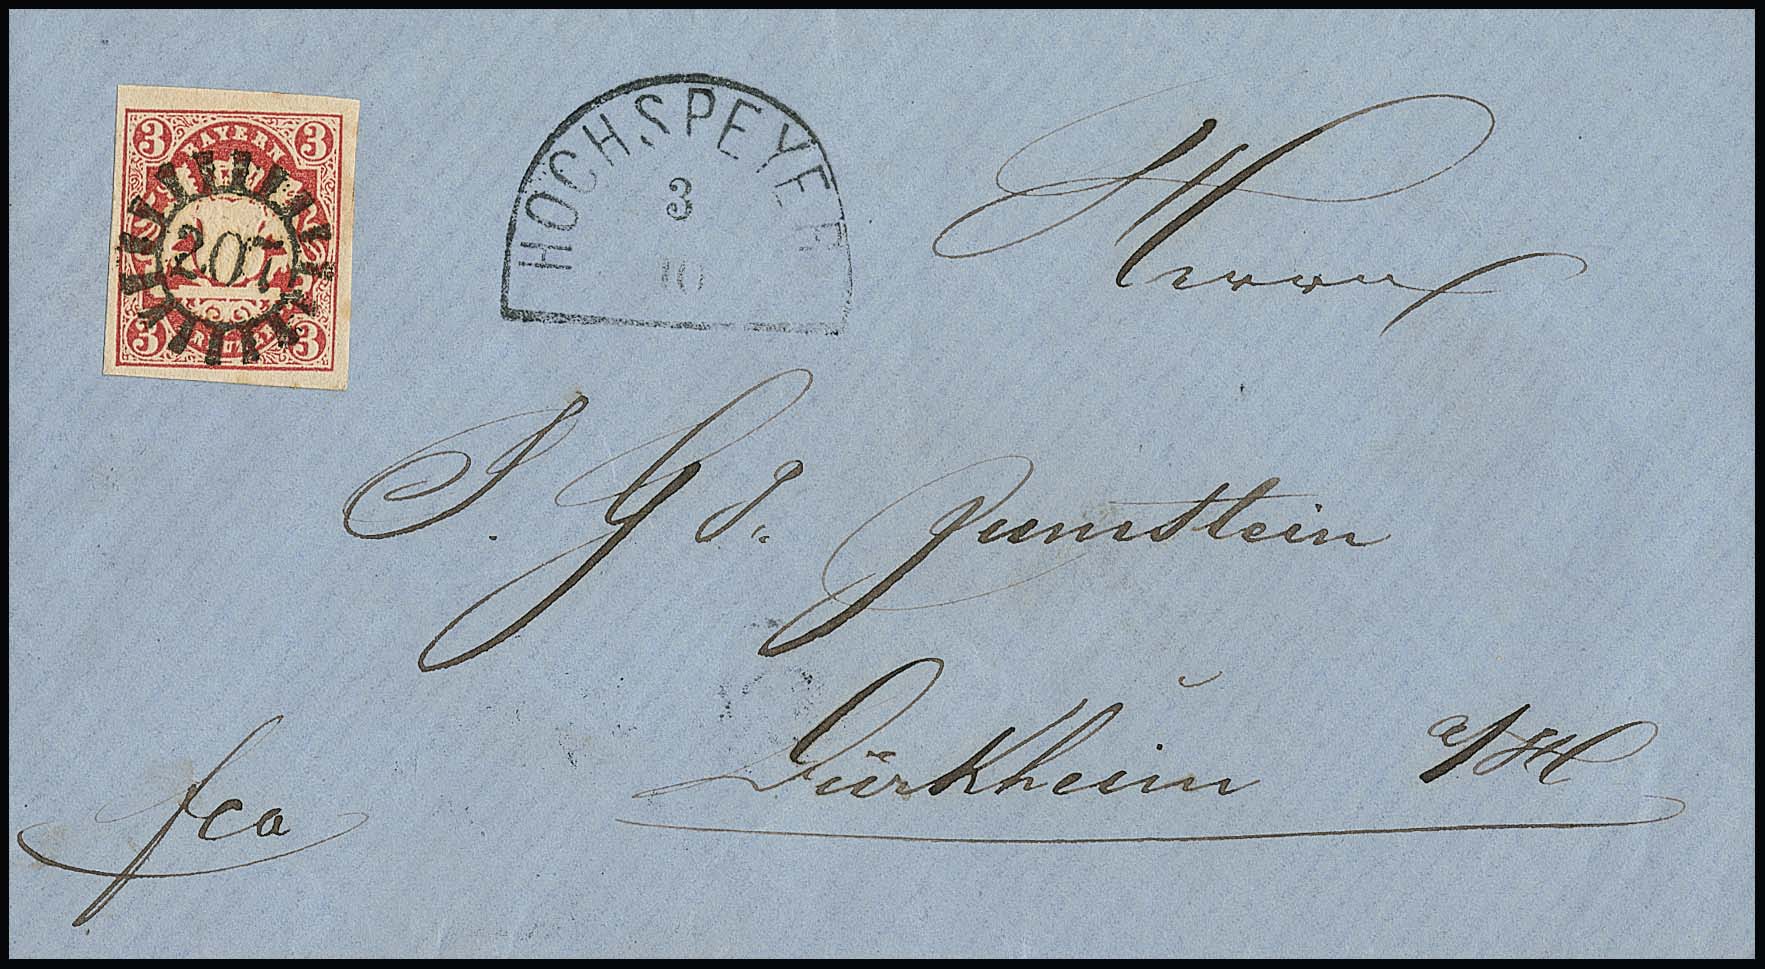 3 BAYERN 3
207
3 KREUZER 3
HOCHSPEYER
3
10
Herrn
J. G. d. Zumstein
Dürkheim a/H
fco